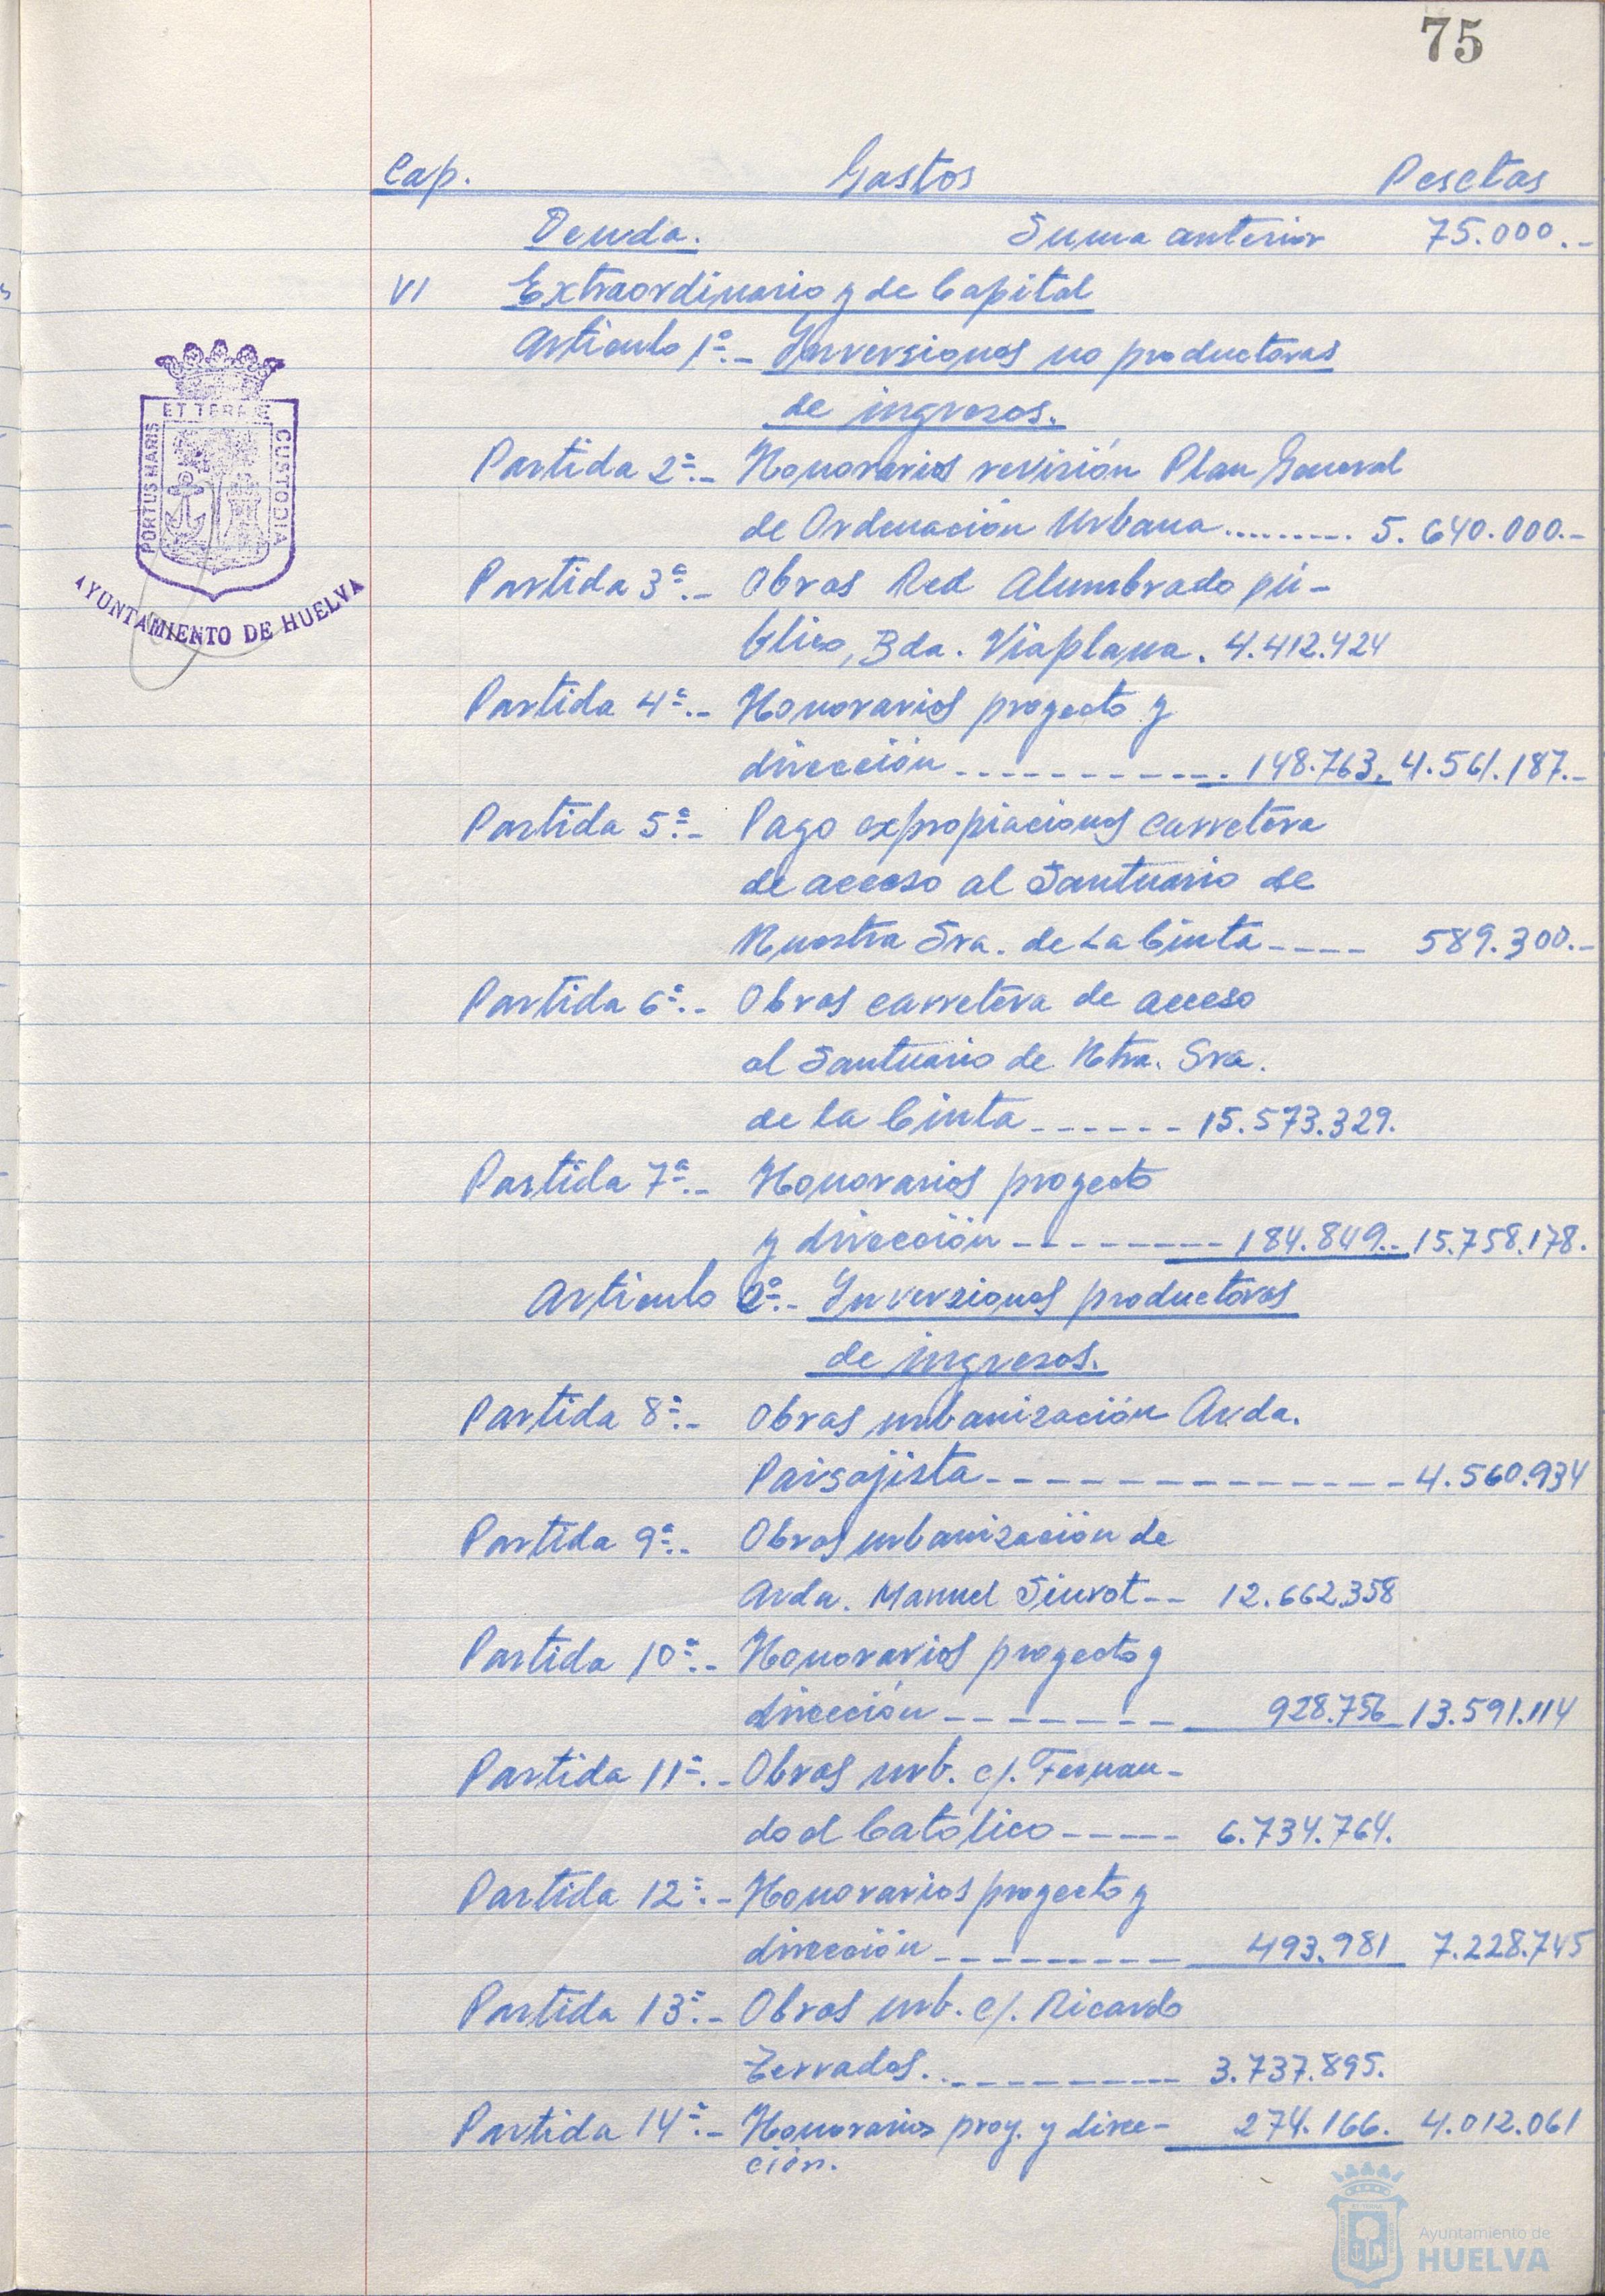 75
Cap. Gastos Pesetas
Deuda. Suma anterior 75.000.-
VI Extraordinario y de Capital
Artículo 1º.- Inversiones no productoras
de ingresos.
Partida 2ª.- Honorarios revisión Plan General
de Ordenación Urbana ......... 5.640.000.-
Partida 3ª.- Obras Red Alumbrado pú-
blico, Bda. Viaplana. 4.412.424
Partida 4ª.- Honorarios proyecto y
dirección ------------ 148.763. 4.561.187.-
Partida 5ª.- Pago expropiaciones carretera
de acceso al Santuario de
Nuestra Sra. de La Cinta ---- 589.300.-
Partida 6ª.- Obras carretera de acceso
al Santuario de Ntra. Sra.
de la Cinta ------ 15.573.329.
Partida 7ª.- Honorarios proyecto
y dirección --------- 184.849.- 15.758.178.
Artículo 2º.- Inversiones productoras
de ingresos.
Partida 8ª.- Obras urbanización Avda.
Paisajista -------------- 4.560.934
Partida 9ª.- Obras urbanización de
Avda. Manuel Siurot -- 12.662.358
Partida 10ª.- Honorarios proyecto y
dirección ------- 928.756 13.591.114
Partida 11ª.- Obras urb. c/. Fernan-
do el Católico ----- 6.734.764.
Partida 12ª.- Honorarios proyecto y
dirección --------- 493.981 7.228.745
Partida 13ª.- Obras urb. c/. Ricardo
Terrades. --------- 3.737.895.
Partida 14ª.- Honorarios proy. y direc- 274.166. 4.012.061
ción.
PORTUS MARIS
ET TERRAE
CUSTODIA
AYUNTAMIENTO DE HUELVA
Ayuntamiento de
HUELVA